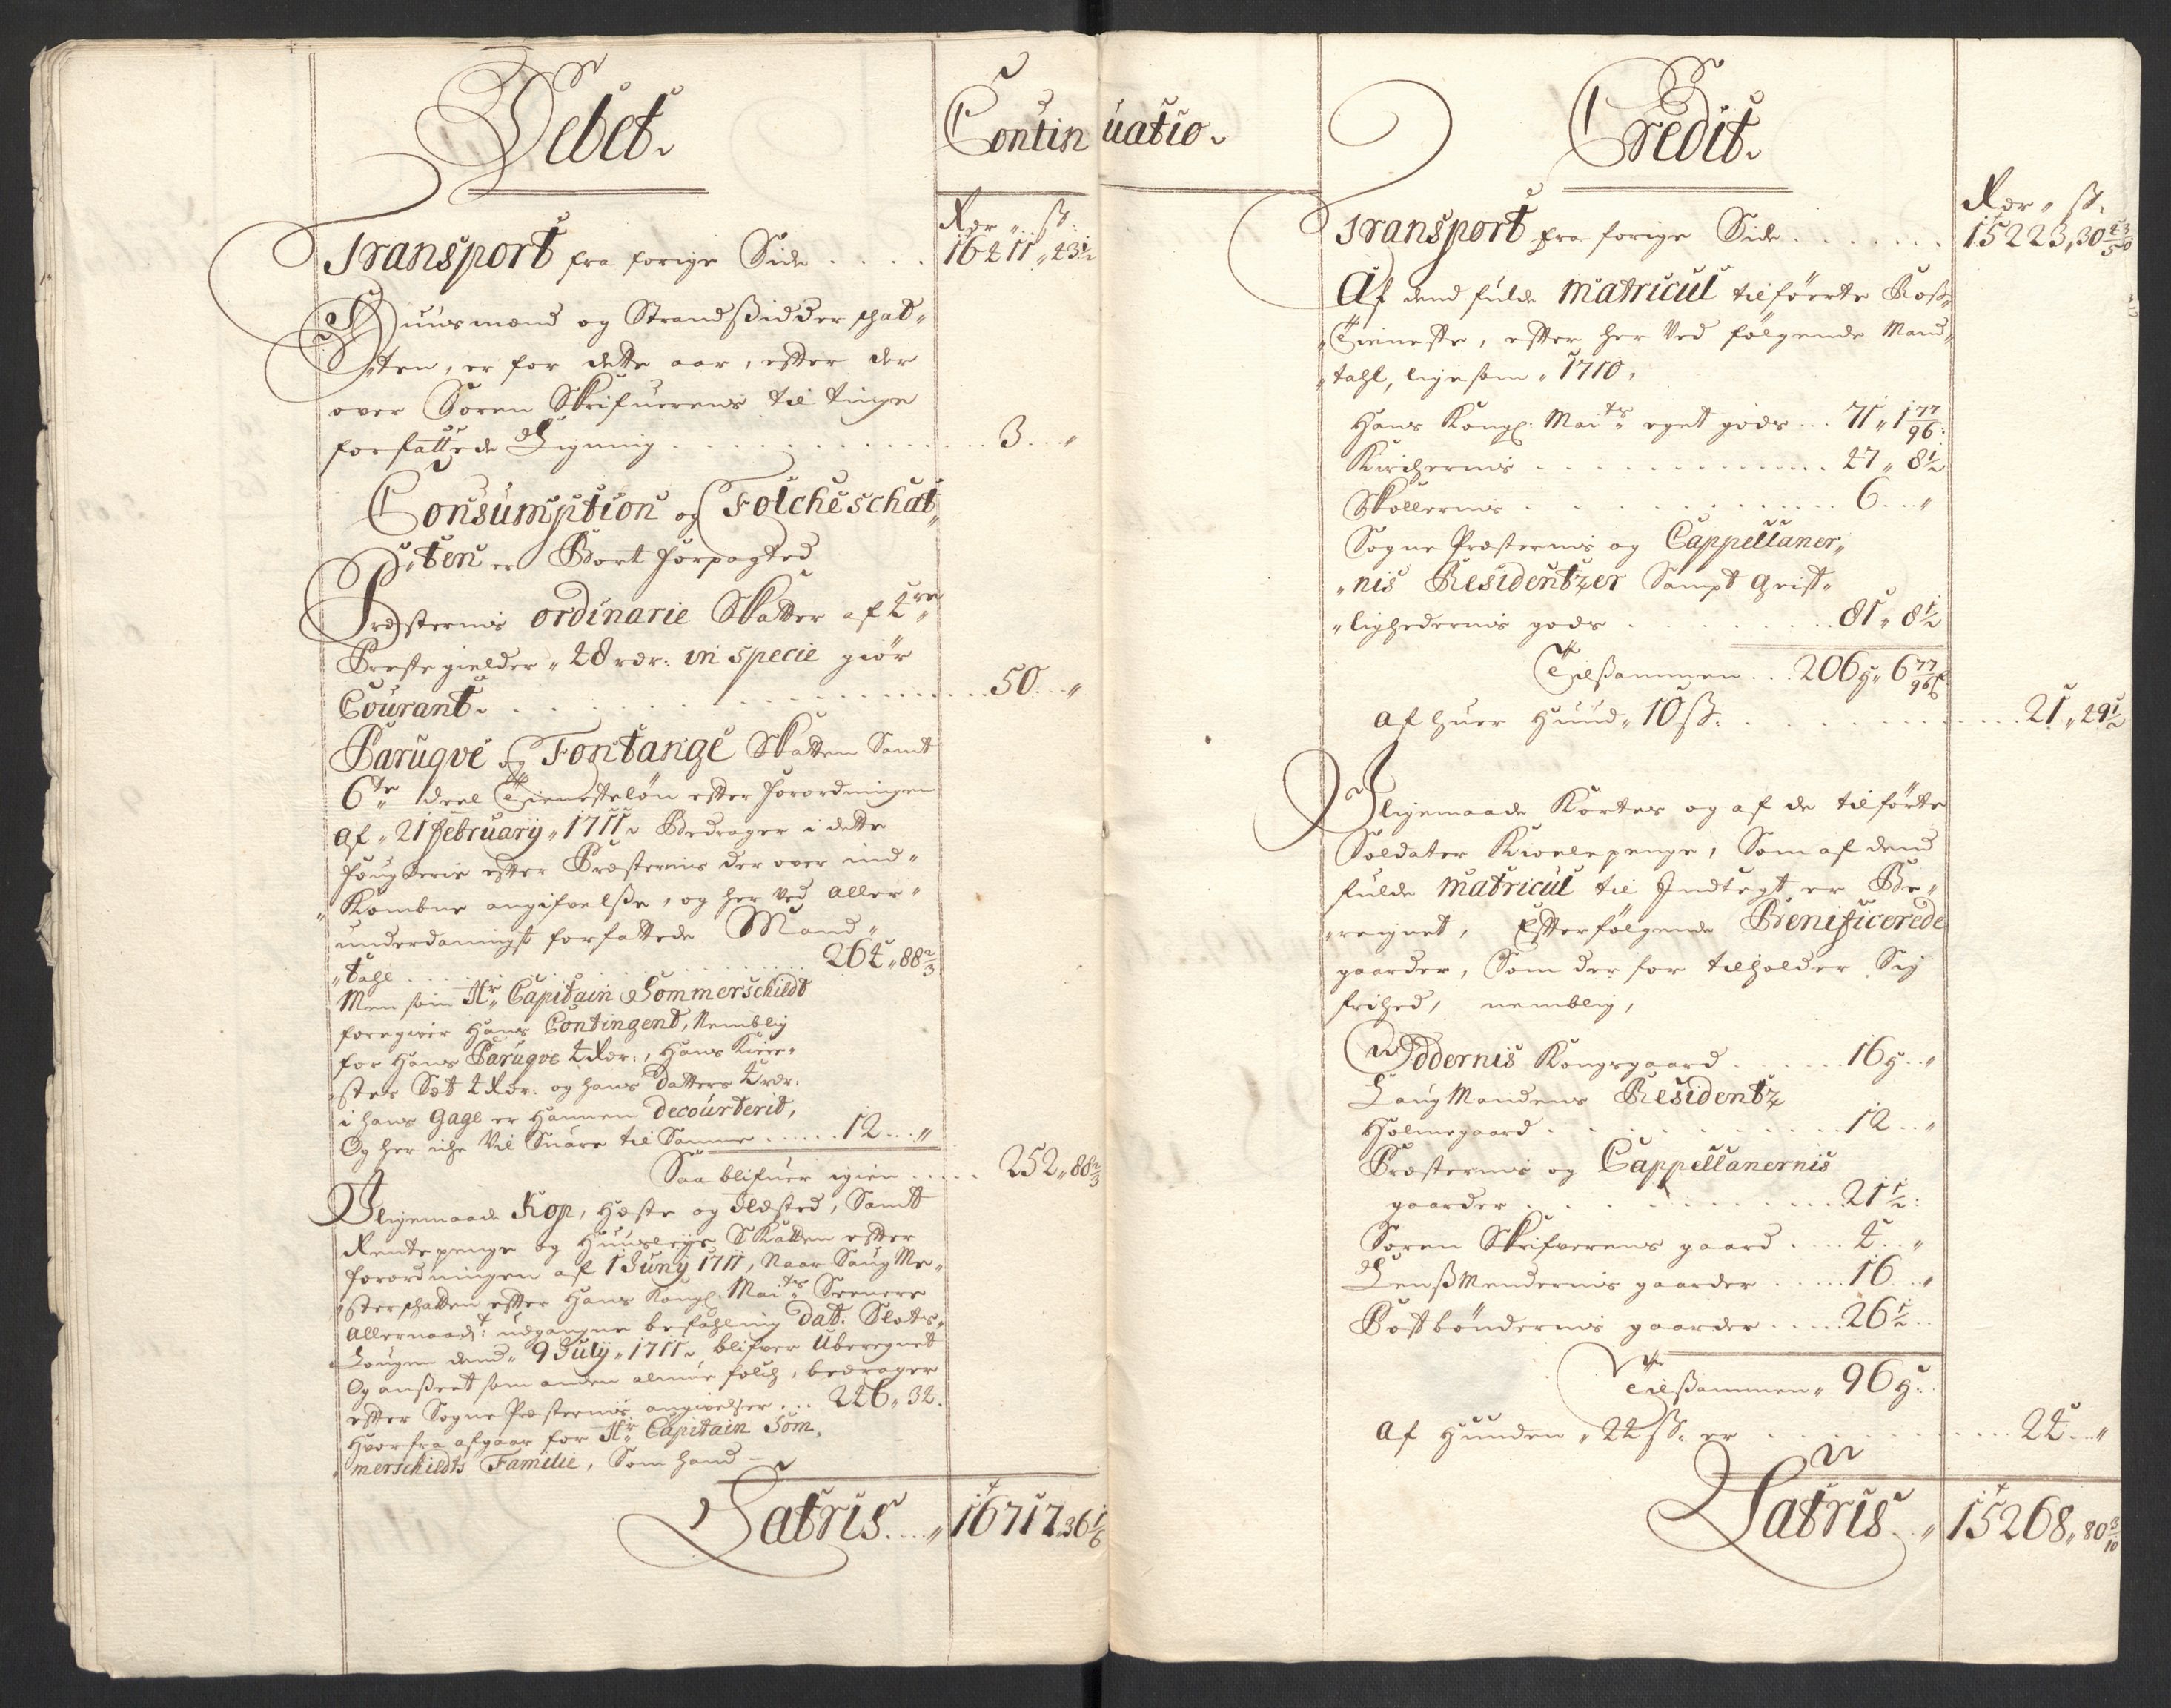 Debet.
Continuatio.
Rdr " ß:
Transport fra forige Side .... 16411 " 43½
Huusmænd og Strandsidder schat-
ten, er for dette aar, efter der
over Soren Skrifuerens til tinge
forfattede Ligning ............ 3 .. "
Consumption og Folcheschat-
ten er Bort forpagted
Præsternis ordinarie Skatter af 4re
Prestegielder " 28 rdr: in specie giör
Courant ............ 50 .. "
Paruqve og Fontange Skatten Samt
6te deel Tienesteløn efter forordningen
af " 21 february " 1711 Bedrager i dette
fougderie efter Præsternis der over ind-
Kombne angifvelse, og her ved aller-
underdanigst forfattede Mand-
tahl ............ 264 " 88⅔
Men som Hr: Capitain Sommerschildt
foregiver hans Contingent, Nemblig
for hans Paruqve 4 Rdr:, hans Kiere-
stes Sæt 4 Rdr: og hans datters 4 rdr:
i hans gage er hannem decourterit,
Og her iche vil Suare til Samme ...... 12 ... "
Saa blifuer igien ..... 252 " 88⅔
Iligemaade Kop, Heste og Ildsted, Samt
Rentepenge og Huusleye Skatten efter
forordningen af 1 Juny 1711, Naar
sterschatten efter Hans Kongl: Maits Seenere
allernaadt: udgangne befahling dat: Slots-
Lougen dend " 9 July " 1711 blifver Uberegnet
Og anseet som anden almue folch, bedrager
efter Sogne Præsternis angivelser ... 246 " 32.
Hvorfra afgaar for Hr: Capitain Som-
merschildts Familie, Som hand -
Latris .... " 16717 " 36⅙
Credit.
Rdr " ß.
Transport fra forige Side ....... 15223 " 30
Af dend fulde Matricul tilførte Ross-
Tieneste, efter her ved følgende Mand-
tahl, ligesom " 1710 "
Hans Kongl: Maits eget gods ... 71 " 1 77/96:
Kirchernis ............ 47 " 8½
Skollernis ............ 6 ... "
Sogne Præsternis og Cappellaner-
nis Residentzer Sampt geist-
lighedernis gods ......... 81 " 8½
Tilsammen ... 206 H " 6 77/96
af huer Huud " 10 ß: ............ 21 " 49½
Iligemaade Kortes og af de tilførte
Soldater Kiolepenge, Som af dend
fulde Matricul til Indtegt er Be-
reignet, Efterfølgende Benificerede
gaarder, Som der for tilholder Sig
frihed, nemblig,
Oddernis Kongsgaard ...... 16 H .. "
Laug Mandens Residentz
Holmegaard ............ 12 .. "
Præsternis og Cappellanernis
gaarder ............ 21½:
Soren Skrifverens gaard .... 4 .. "
LensMendernis gaarder ..... 16 .. "
Postbøndernis gaarder ..... 26½ ..
Tilsammen " 96 H:
Af Huuden " 24 ß: er ............ 24 .. "
Latris .. " 15268 " 80 3/10